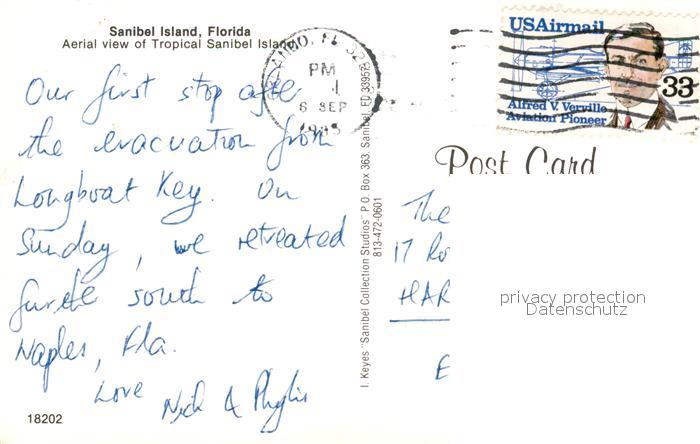 Sanibel Island, Florida
Aerial view of Tropical Sanibel Island
Our first stop after
the evacuation from
Longboat Key. On
Sunday, we retreated
further south to
Naples, Fla.
Love Nick & Phyllis
18202
I. Keyes "Sanibel Collection Studios" P.O. Box 363, Sanibel, FL 33957
813-472-0601
FL 328
PM
6 SEP
1985
USAirmail
33
Alfred V. Verville
Aviation Pioneer
Post Card
The
17 Ro
HAR
E
privacy protection
Datenschutz